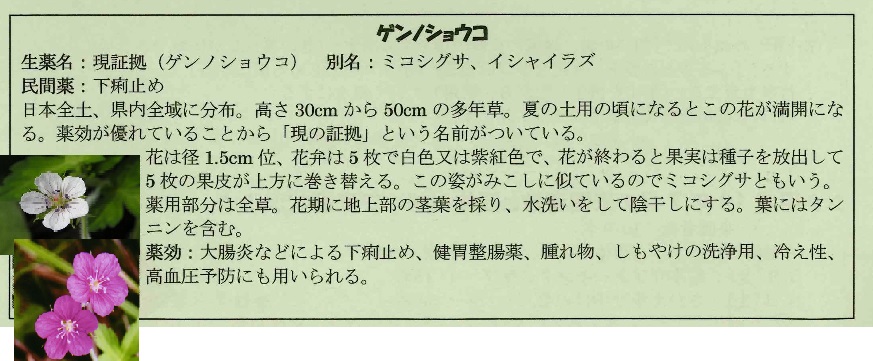 ゲンノショウコ
生薬名：現証拠（ゲンノショウコ）　別名：ミコシグサ、イシャイラズ
民間薬：下痢止め
日本全土、県内全域に分布。高さ 30cm から 50cm の多年草。夏の土用の頃になるとこの花が満開にな
る。薬効が優れていることから「現の証拠」という名前がついている。
花は径 1.5cm 位、花弁は 5 枚で白色又は紫紅色で、花が終わると果実は種子を放出して
5 枚の果皮が上方に巻き替える。この姿がみこしに似ているのでミコシグサともいう。
薬用部分は全草。花期に地上部の茎葉を採り、水洗いをして陰干しにする。葉にはタン
ニンを含む。
薬効：大腸炎などによる下痢止め、健胃整腸薬、腫れ物、しもやけの洗浄用、冷え性、
高血圧予防にも用いられる。